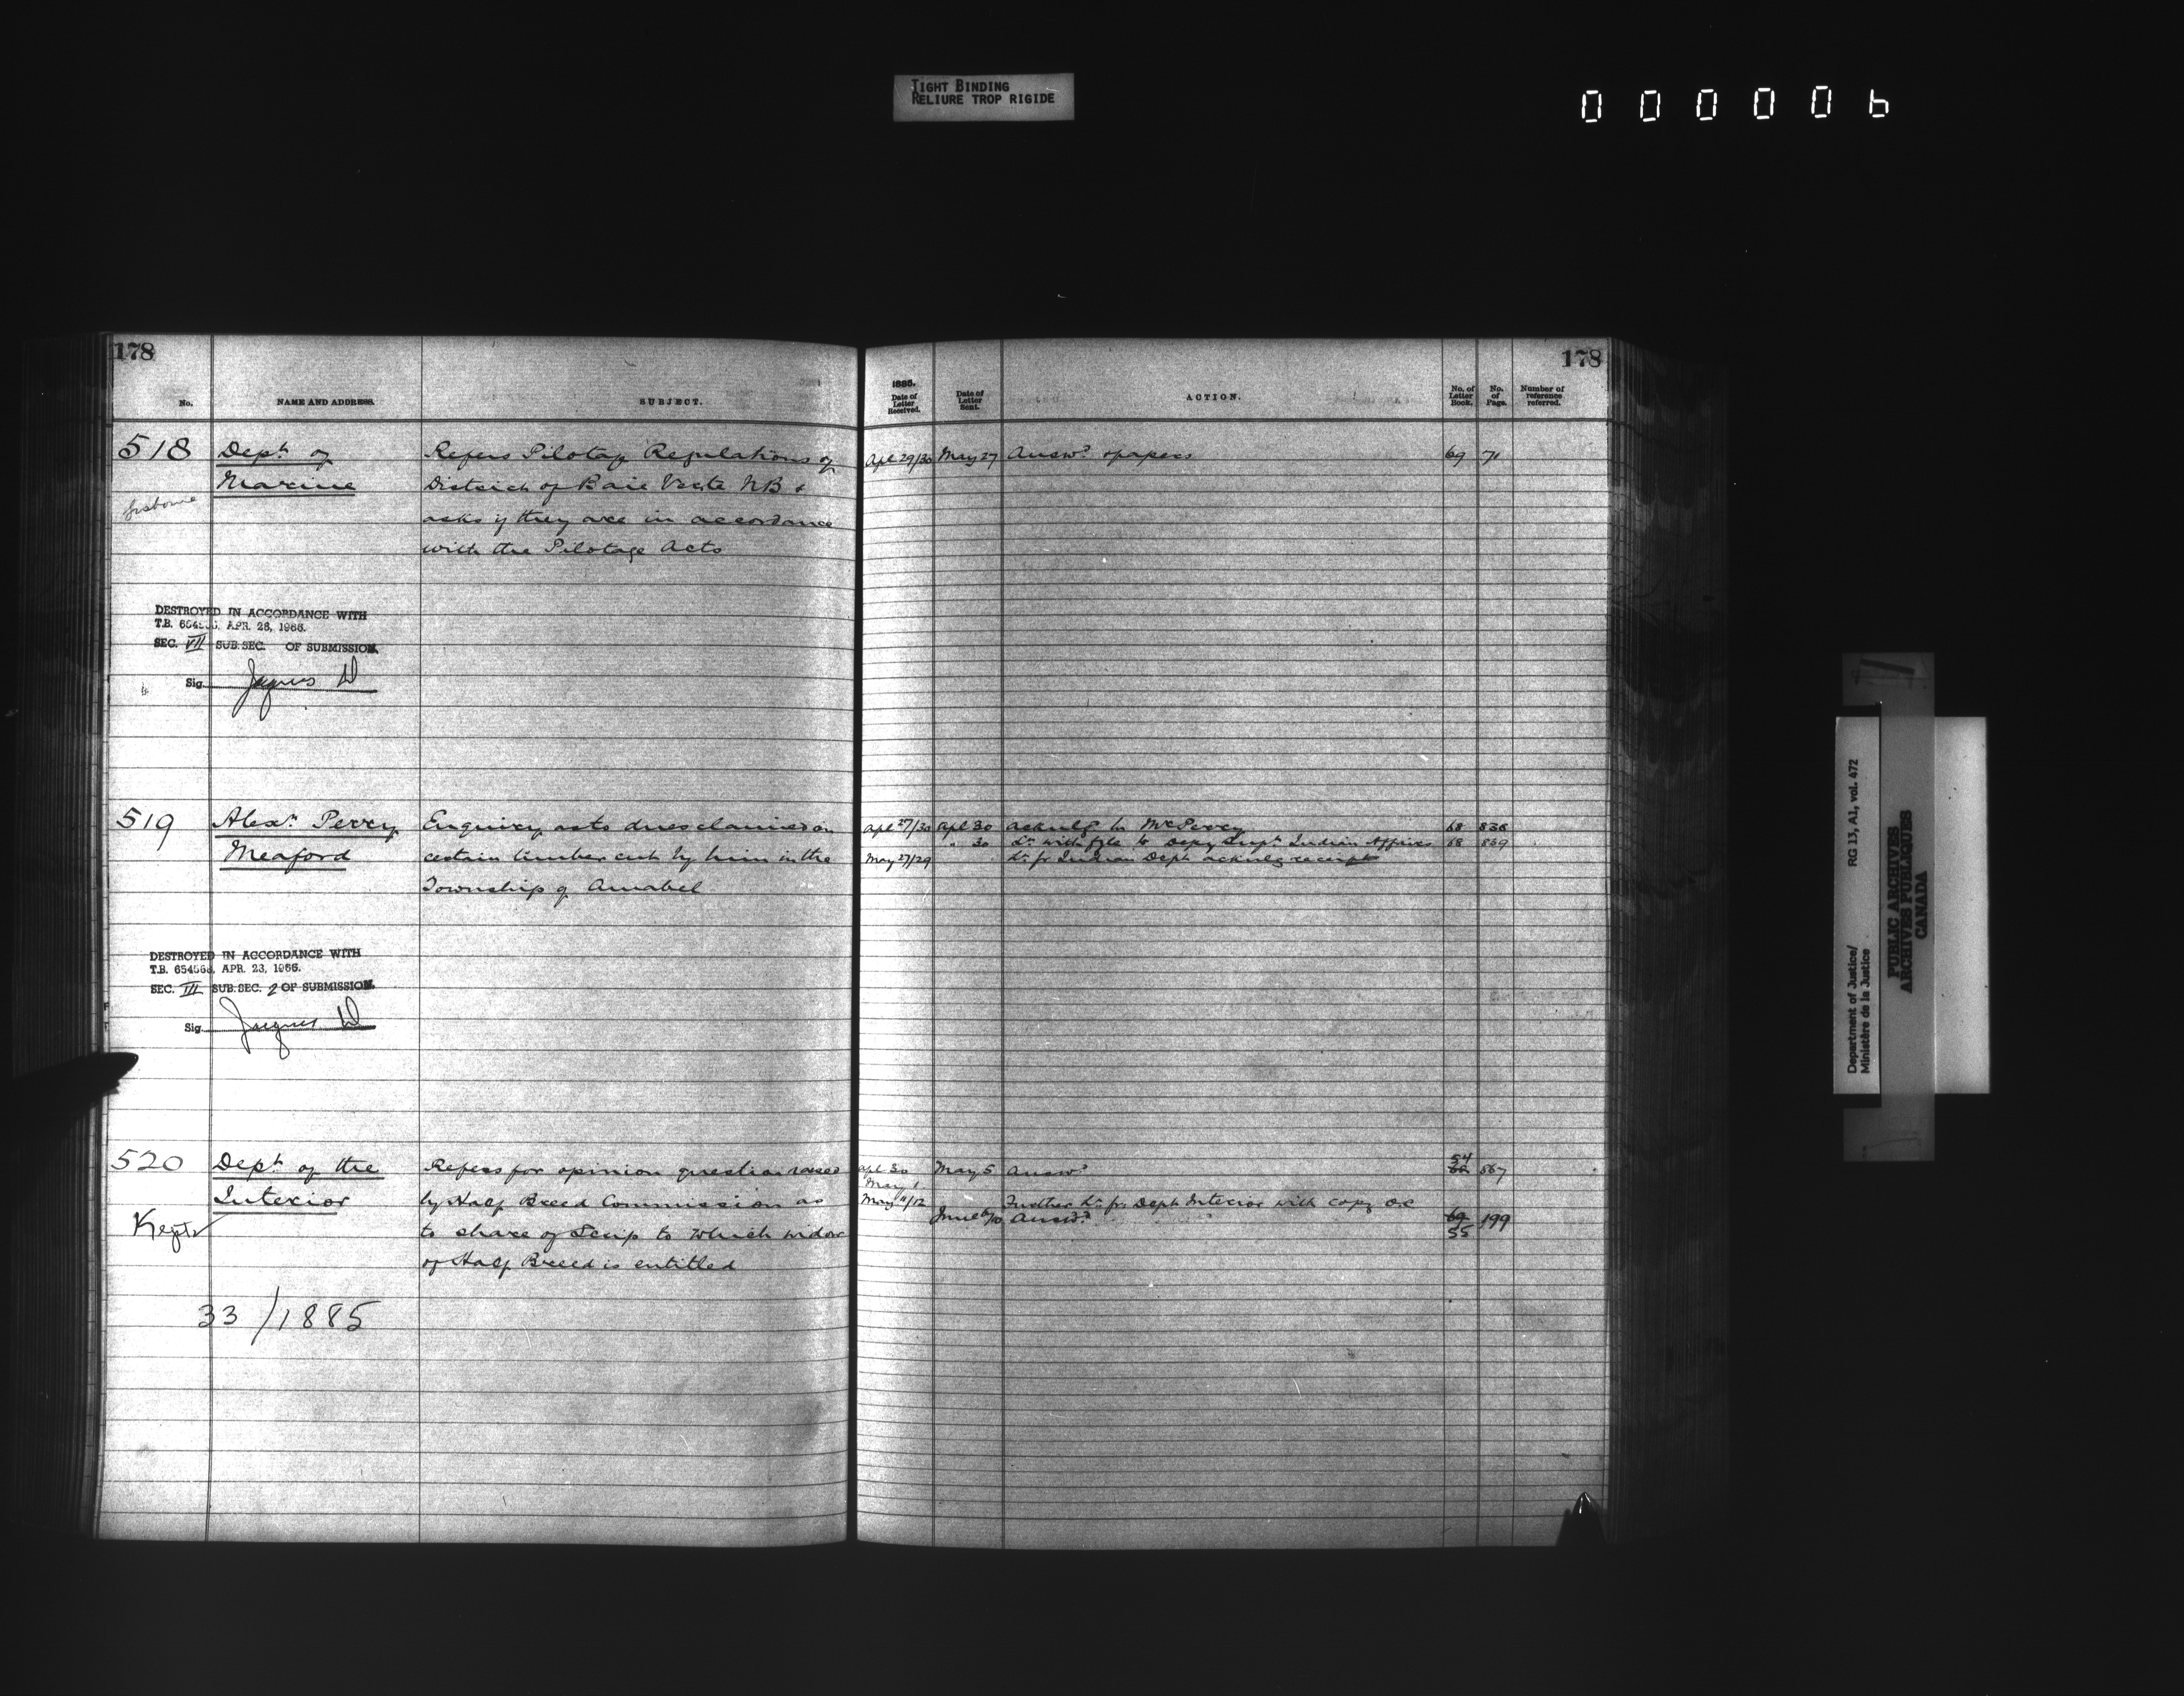 TIGHT BINDING
RELIURE TROP RIGIDE
000006
178
No. NAME AND ADDRESS. SUBJECT.
518 Dept. of Refers Pilotage Regulations of
Marine District of Baie Verte NB &
asks if they are in accordance
with the Pilotage Acts
DESTROYED IN ACCORDANCE WITH
T.B. APR. 28, 1966.
SEC. VII SUB. SEC. OF SUBMISSION.
Sig. Jacques D
519 Alexr. Perry Enquiry as to dues claimed on
Meaford certain timber cut by him in the
Township of Amabel
DESTROYED IN ACCORDANCE WITH
T.B. 654568, APR. 23, 1966.
SEC. III SUB. SEC. 2 OF SUBMISSION.
Sig. Jacques D
520 Dept. of the Refers for opinion question raised
Interior by Half Breed Commission as
Kept to share of Scrip to which widow
of Half Breed is entitled
33/1885
178
1885.
Date of Letter Received. Date of Letter Sent. ACTION. No. of Letter Book. No. of Page. Number of reference referred.
Apl 29/30 May 27 Answd. & papers 69 71
Apl 27/30 Apl 30 Acknlg Lr McPerry 68 838
" 30 Lr. with fyle to Depy Supt. Indian Affairs 68 839
May 27/29 Lr. fr Indian Dept acknlg receipt
Apl 30 May 5 Answd. 54 867
May 1
May 11/12 Further Lr. fr. Dept Interior with copy OC
June 6/10 Answd. 69 199
55
Department of Justice/ RG 13, A1, vol. 472
Ministère de la Justice
PUBLIC ARCHIVES
ARCHIVES PUBLIQUES
CANADA